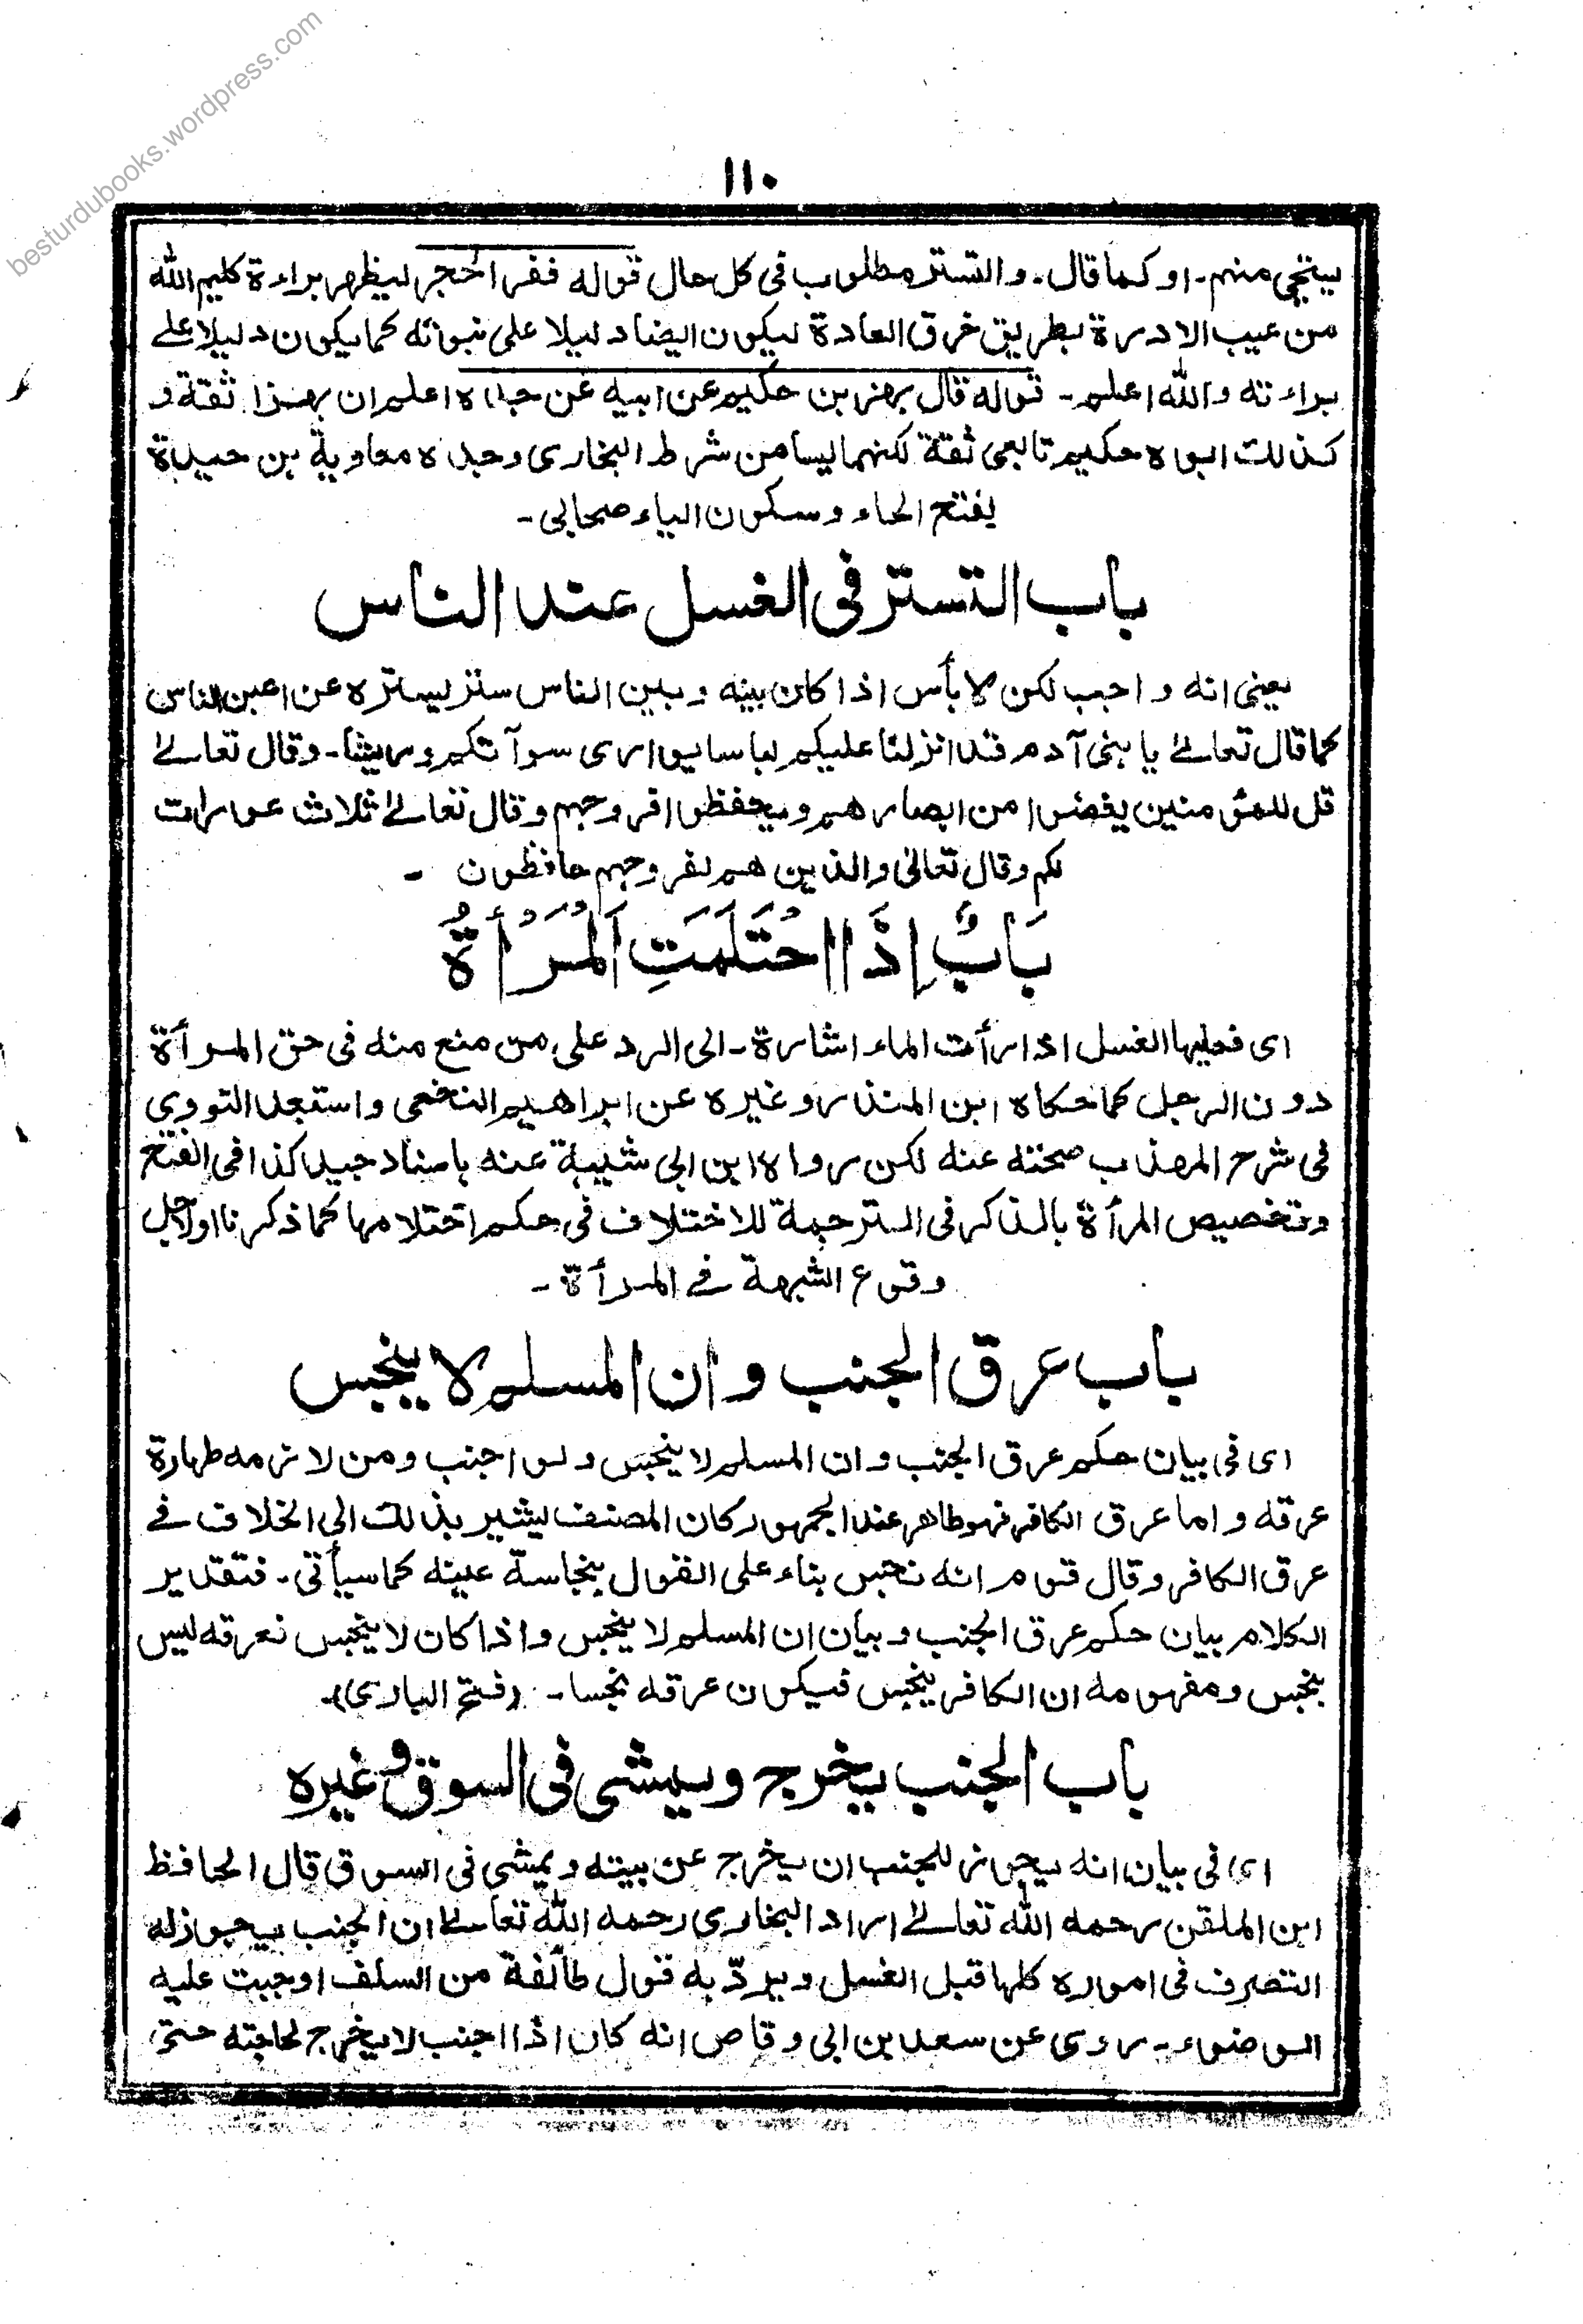 besturdubooks.wordpress.com
١١٠
يستحيى منهم۔ او كما قال۔ والتستر مطلوب فى كل حال قوله ففر الحجر ليظهر براءة كليم الله
من عيب الادرة بطريق خرق العادة ليكون ايضا دليلا على نبوته كما يكون دليلا على
براءته والله اعلم۔ قوله قال بهز بن حكيم عن ابيه عن جده اعلم ان بهزا ثقة و
كذلك ابوه حكيم تابعى ثقة لكنهما ليسا من شرط البخارى وجده معاوية بن حيدة
بفتح الحاء وسكون الياء صحابى۔
باب التستر فى الغسل عند الناس
يعنى انه واجب لكن لا بأس اذا كان بينه وبين الناس ستر يستره عن اعين الناس
كما قال تعالے يا بنى آدم قد انزلنا عليكم لباسا يوارى سوآتكم وريشا۔ وقال تعالے
قل للمؤمنين يغضوا من ابصارهم ويحفظوا فروجهم وقال تعالے ثلاث عورات
لكم وقال تعالى والذين هم لفروجهم حافظون ۔
بَابٌ إِذَا احْتَلَمَتِ الْمَرْأَةُ
اى فعليها الغسل اذا رأت الماء اشارة۔ الى الرد على من منع منه فى حق المرأة
دون الرجل كما حكاه ابن المنذر وغيره عن ابراهيم النخعى واستبعد النووى
فى شرح المهذب صحته عنه لكن رواه ابن ابى شيبة عنه باسناد جيد كذا فى الفتح
وتخصيص المرأة بالذكر فى الترجمة للاختلاف فى حكم احتلامها كما ذكرنا اولاجل
وقوع الشبهة فے المرأة۔
باب عرق الجنب وان المسلم لا ينجس
اى فى بيان حكم عرق الجنب وان المسلم لا ينجس ولو اجنب ومن لازمه طهارة
عرقه واما عرق الكافر فهو طاهر عند الجمهور وكان المصنف يشير بذلك الى الخلاف فے
عرق الكافر وقال قوم انه نجس بناء على القول بنجاسة عينه كما سيأتى۔ فتقدير
الكلام بيان حكم عرق الجنب وبيان ان المسلم لا ينجس واذا كان لا ينجس فعرقه ليس
بنجس ومفهومه ان الكافر ينجس فيكون عرقه نجسا۔ (فتح البارى)۔
باب الجنب يخرج ويمشى فى السوق وغيره
اى فى بيان انه يجوز للجنب ان يخرج عن بيته ويمشى فى السوق قال الحافظ
ابن الملقن رحمه الله تعالے اراد البخارى رحمه الله تعالے ان الجنب يجوز له
التصرف فى اموره كلها قبل الغسل ويردّ به قول طائفة من السلف اوجبت عليه
الوضوء۔ روى عن سعد بن ابى وقاص انه كان اذا اجنب لا يخرج لحاجته حتى